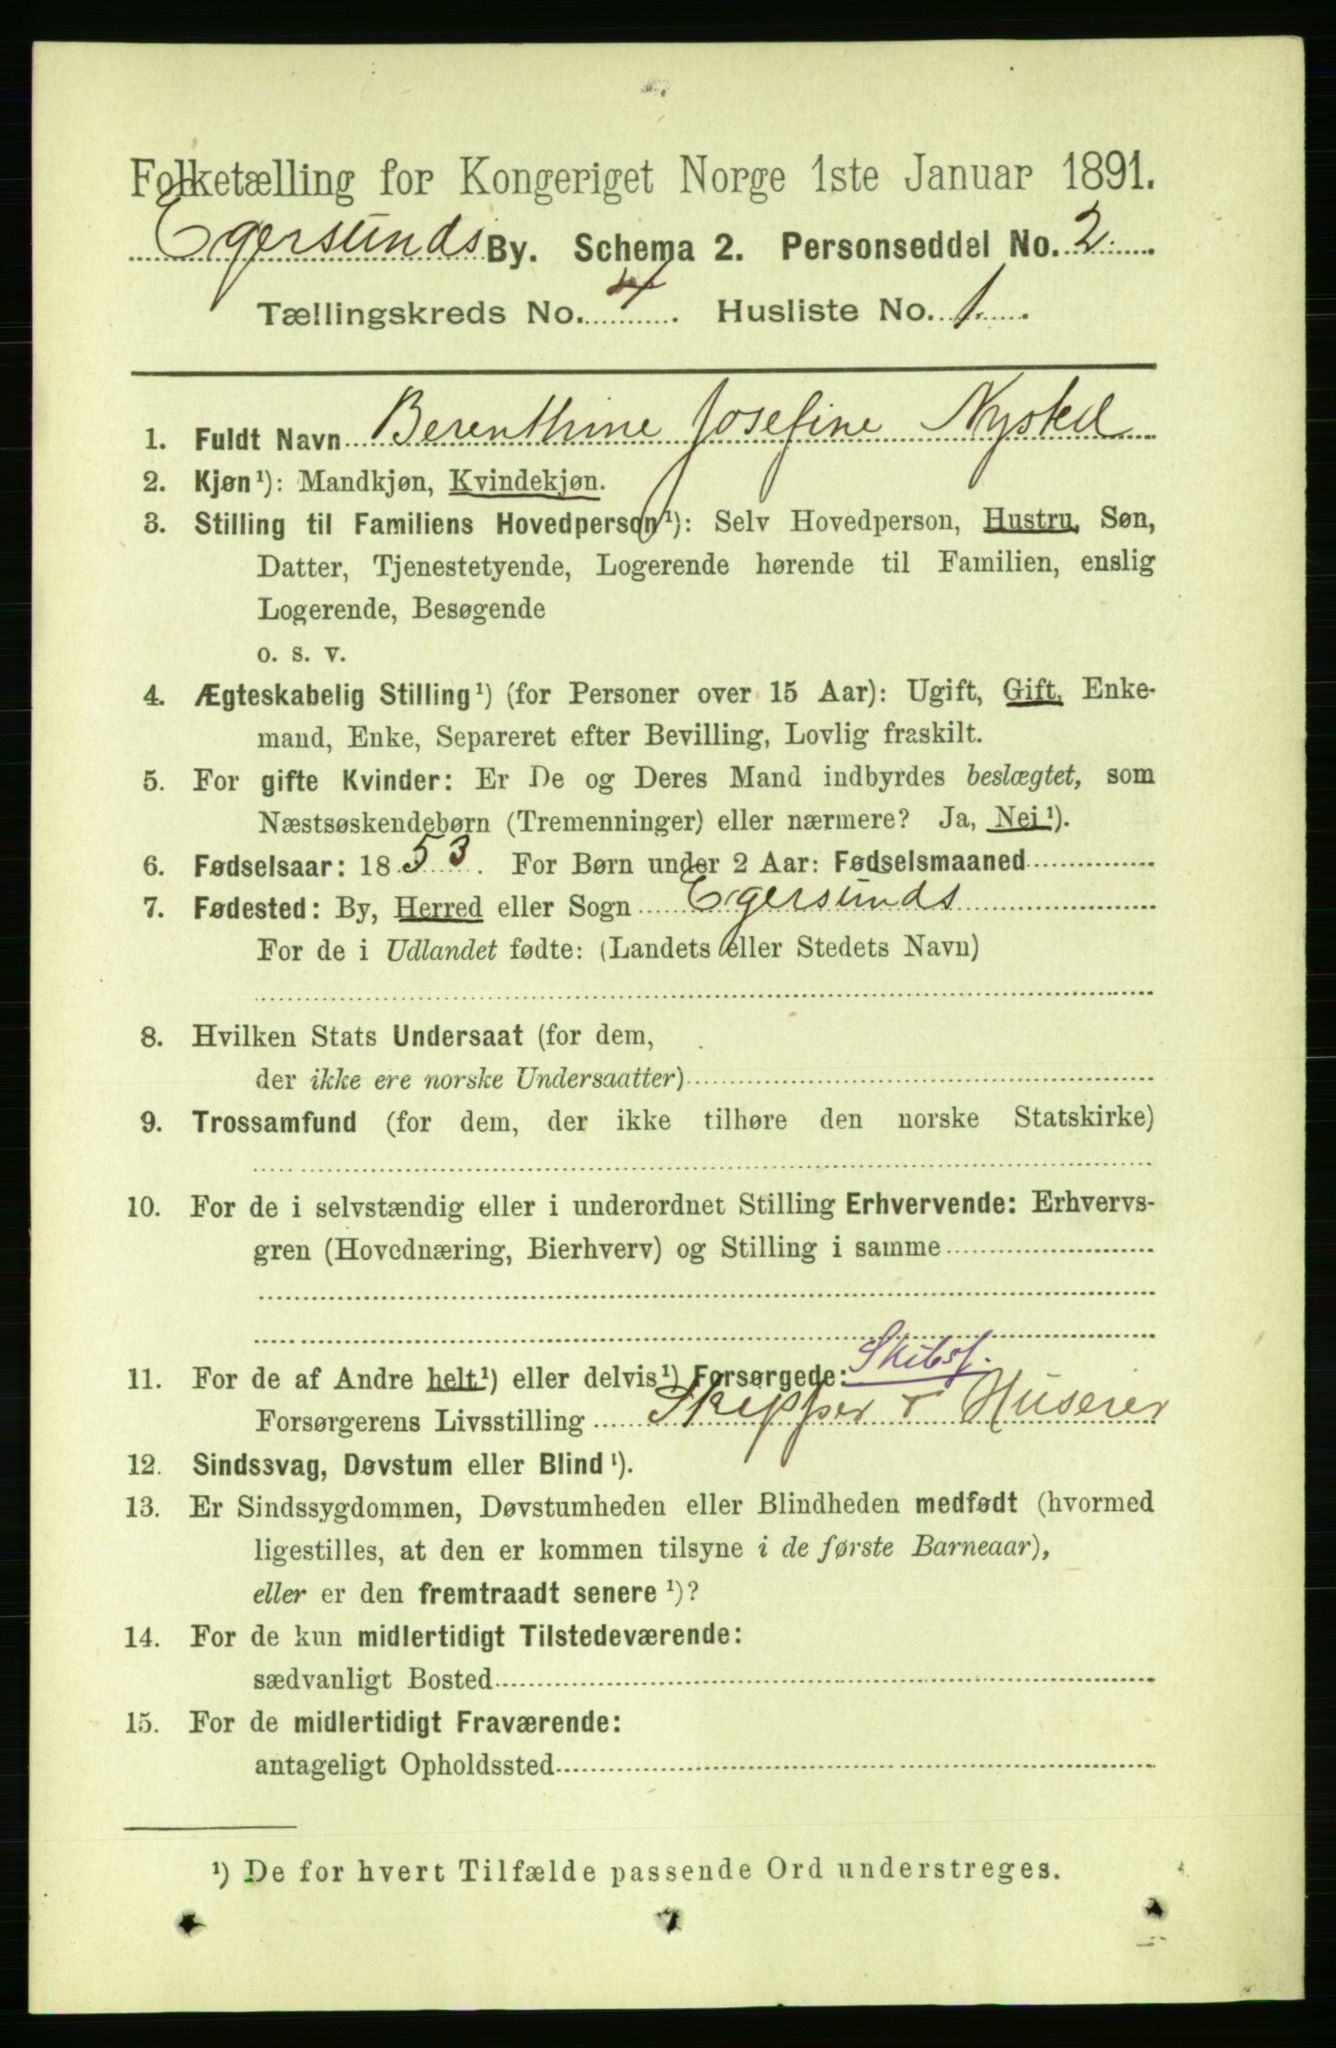 Folketælling for Kongeriget Norge 1ste Januar 1891.
Egersunds By. Schema 2. Personseddel No. 2
Tællingskreds No. 4. Husliste No. 1.
1. Fuldt Navn Berenthine Josefine Nysted
2. Kjøn¹): Mandkjøn, Kvindekjøn.
3. Stilling til Familiens Hovedperson¹): Selv Hovedperson, Hustru, Søn,
Datter, Tjenestetyende, Logerende hørende til Familien, enslig
Logerende, Besøgende
o. s. v.
4. Ægteskabelig Stilling¹) (for Personer over 15 Aar): Ugift, Gift, Enke-
mand, Enke, Separeret efter Bevilling, Lovlig fraskilt.
5. For gifte Kvinder: Er De og Deres Mand indbyrdes beslægtet, som
Næstsøskendebørn (Tremenninger) eller nærmere? Ja, Nei¹).
6. Fødselsaar: 1853. For Børn under 2 Aar: Fødselsmaaned
7. Fødested: By, Herred eller Sogn Egersunds
For de i Udlandet fødte: (Landets eller Stedets Navn)
8. Hvilken Stats Undersaat (for dem,
der ikke ere norske Undersaatter)
9. Trossamfund (for dem, der ikke tilhøre den norske Statskirke)
10. For de i selvstændig eller i underordnet Stilling Erhvervende: Erhvervs-
gren (Hovednæring, Bierhverv) og Stilling i samme
Skibsf.
11. For de af Andre helt¹) eller delvis¹) Forsørgede:
Forsørgerens Livsstilling Skipper & Huseier
12. Sindssvag, Døvstum eller Blind¹).
13. Er Sindssygdommen, Døvstumheden eller Blindheden medfødt (hvormed
ligestilles, at den er kommen tilsyne i de første Barneaar),
eller er den fremtraadt senere¹)?
14. For de kun midlertidigt Tilstedeværende:
sædvanligt Bosted
15. For de midlertidigt Fraværende:
antageligt Opholdssted
¹) De for hvert Tilfælde passende Ord understreges.